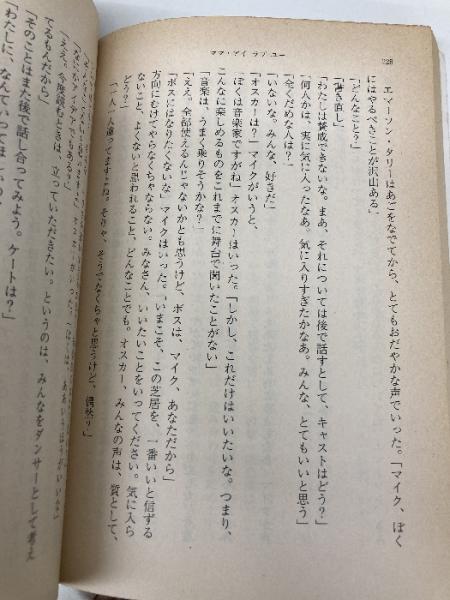 228
ママ・アイ ラブ ユー
エマーソン・タリーはあごをなでてから、とてもおだやかな声でいった。「マイク、ぼく
にはやるべきことが沢山ある」
「どんなこと?」
「書き直し」
「わたしは賛成できないな。まあ、それについては後で話すとして、キャストはどう?」
「何人かは、実に気に入ったなあ。気に入りすぎたかなあ。みんな、とてもいいと思う」
「全くだめな人は?」
「いないな。みんな、好きだ」
「オスカーは?」マイクがいうと、
「ぼくは音楽家ですがね」オスカーはいった。「しかし、これだけはいいたいな。つまり、
こんなに楽しめるものをこれまでに舞台で聞いたことがない」
「音楽は、うまく乗りそうかな?」
「ええ。全部使えるんじゃないかとも思うけど、ボスは、マイク、あなただから」
「ボスにはなりたくないな」マイクはいった。「いまこそ、この芝居を、一番いいと信ずる
方向にむけてやらなくちゃならない。みなさん、いいたいことをいってください。気に入ら
ないこと、よくないと思われること、どんなことでも。オスカー、みんなの声は、質として、
どう?」
「一人一人違ってますよね。そりゃ、そうでなくちゃと思うけど、
「ええ。今度読むときは、立っていただきたい。というのは、みんなをダンサーとして考え
てるもんだから」
「そのことはまた後で話し合ってみよう。ケートは?」
「わたしに、なんていって